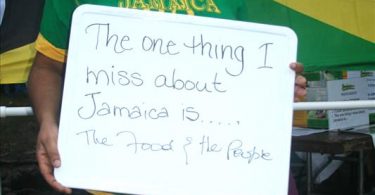 JAMAICA
The one thing I
miss about
Jamaica is.....
The Food & the People